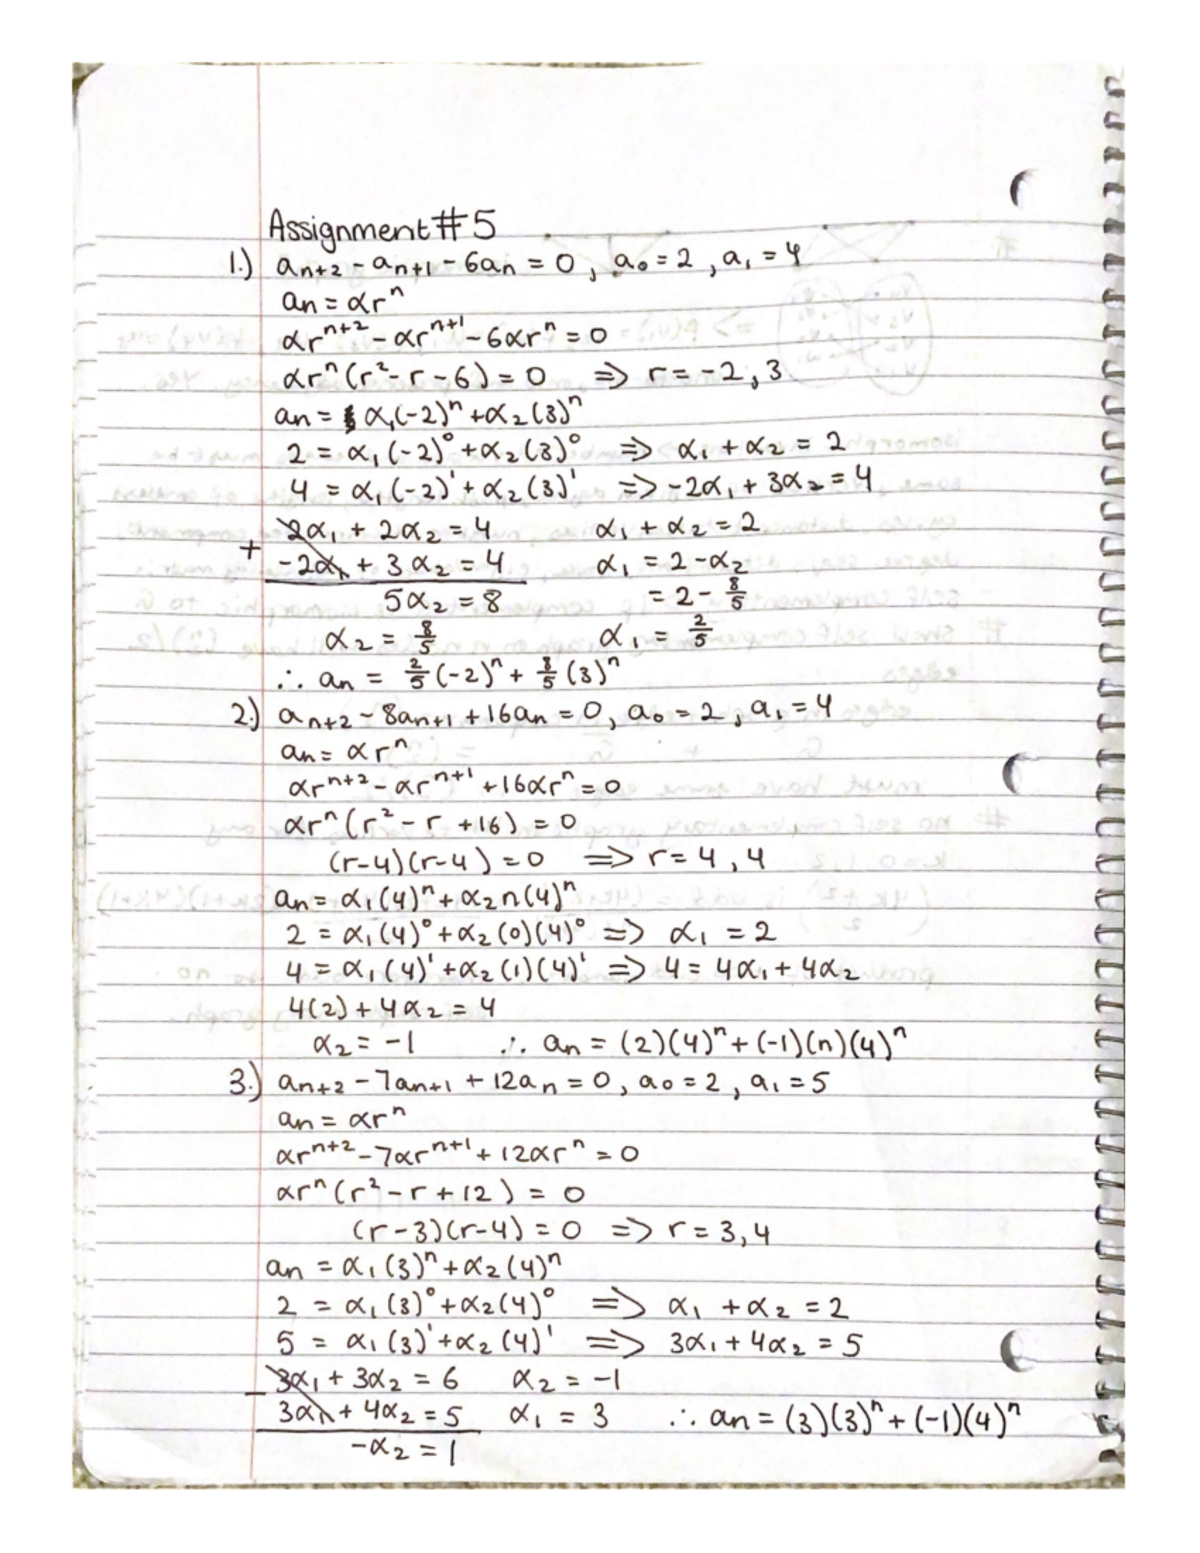 Assignment #5
1.) an+2 - an+1 - 6an = 0, a0 = 2, a1 = 4
an = αrⁿ
αrⁿ⁺² - αrⁿ⁺¹ - 6αrⁿ = 0
αrⁿ(r² - r - 6) = 0 => r = -2, 3
an = α1(-2)ⁿ + α2(3)ⁿ
2 = α1(-2)⁰ + α2(3)⁰ => α1 + α2 = 2
4 = α1(-2)¹ + α2(3)¹ => -2α1 + 3α2 = 4
2α1 + 2α2 = 4 α1 + α2 = 2
+ -2α1 + 3α2 = 4 α1 = 2 - α2
5α2 = 8 = 2 - 8/5
α2 = 8/5 α1 = 2/5
∴ an = 2/5(-2)ⁿ + 8/5(3)ⁿ
2.) an+2 - 8an+1 + 16an = 0, a0 = 2, a1 = 4
an = αrⁿ
αrⁿ⁺² - αrⁿ⁺¹ + 16αrⁿ = 0
αrⁿ(r² - r + 16) = 0
(r-4)(r-4) = 0 => r = 4, 4
an = α1(4)ⁿ + α2n(4)ⁿ
2 = α1(4)⁰ + α2(0)(4)⁰ => α1 = 2
4 = α1(4)¹ + α2(1)(4)¹ => 4 = 4α1 + 4α2
4(2) + 4α2 = 4
α2 = -1 ∴ an = (2)(4)ⁿ + (-1)(n)(4)ⁿ
3.) an+2 - 7an+1 + 12an = 0, a0 = 2, a1 = 5
an = αrⁿ
αrⁿ⁺² - 7αrⁿ⁺¹ + 12αrⁿ = 0
αrⁿ(r² - r + 12) = 0
(r-3)(r-4) = 0 => r = 3, 4
an = α1(3)ⁿ + α2(4)ⁿ
2 = α1(3)⁰ + α2(4)⁰ => α1 + α2 = 2
5 = α1(3)¹ + α2(4)¹ => 3α1 + 4α2 = 5
3α1 + 3α2 = 6 α2 = -1
- 3α1 + 4α2 = 5 α1 = 3 ∴ an = (3)(3)ⁿ + (-1)(4)ⁿ
-α2 = 1